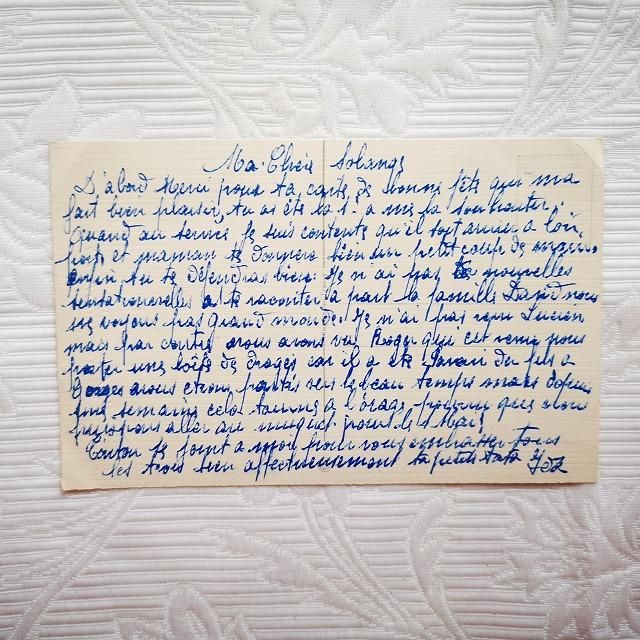 Ma Chère Solange
D'abord Merci pour ta carte de bonne fête qui ma
fait bien plaisir, tu as été la 1. a me la souhaiter.
Quand au service Je suis contente qu'il soit arrivé a
port et maman te donnera bien un petit coup de main
enfin tu te défendras bien. Je n'ai pas de nouvelles
sensationnelles a te raconter a part la famille David nous
ne voyons pas grand monde. Je n'ai pas revu Lucien
mais par contre nous avons vu Roger qui est venu nous
porter une boîte de dragés car il a été Parain du fils a
Gorges nous etions partis vers le beau temps mais depuis
une semaine cela tourne a l'orage pourvu que nous
puissions aller au muguet pour le 1 Mai.
Tonton se joint a moi pour vous embrasser tous
les trois bien affectueusement ta petite tata